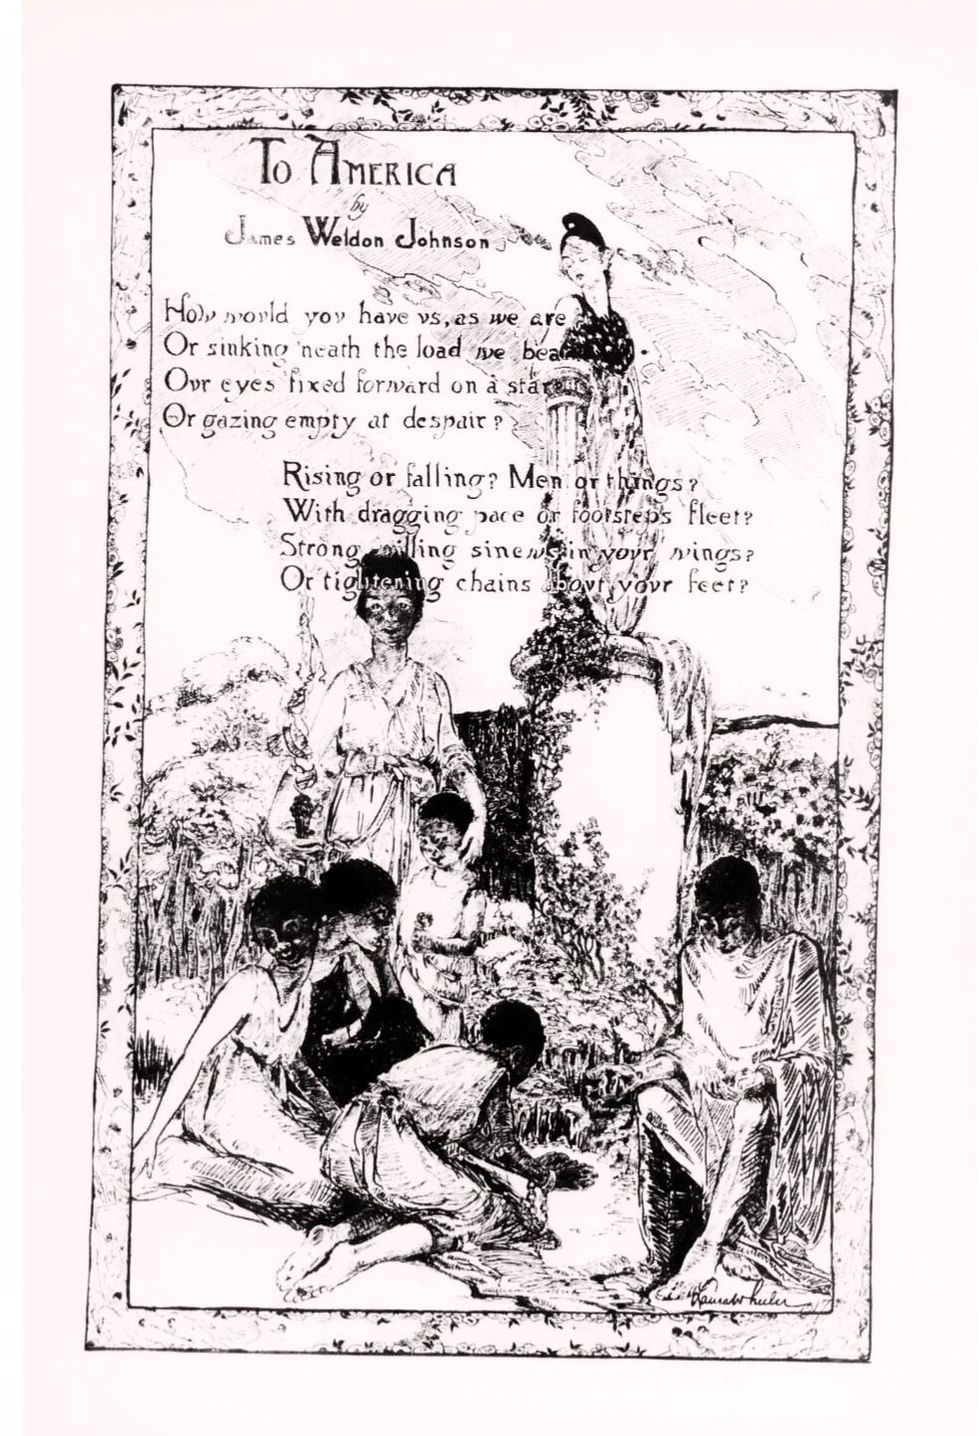 To America
by
James Weldon Johnson
How would you have us, as we are
Or sinking 'neath the load we bear
Our eyes fixed forward on a star
Or gazing empty at despair?
Rising or falling? Men or things?
With dragging pace or footsteps fleet?
Strong, willing sinews in your wings?
Or tightening chains about your feet?
Laura Wheeler